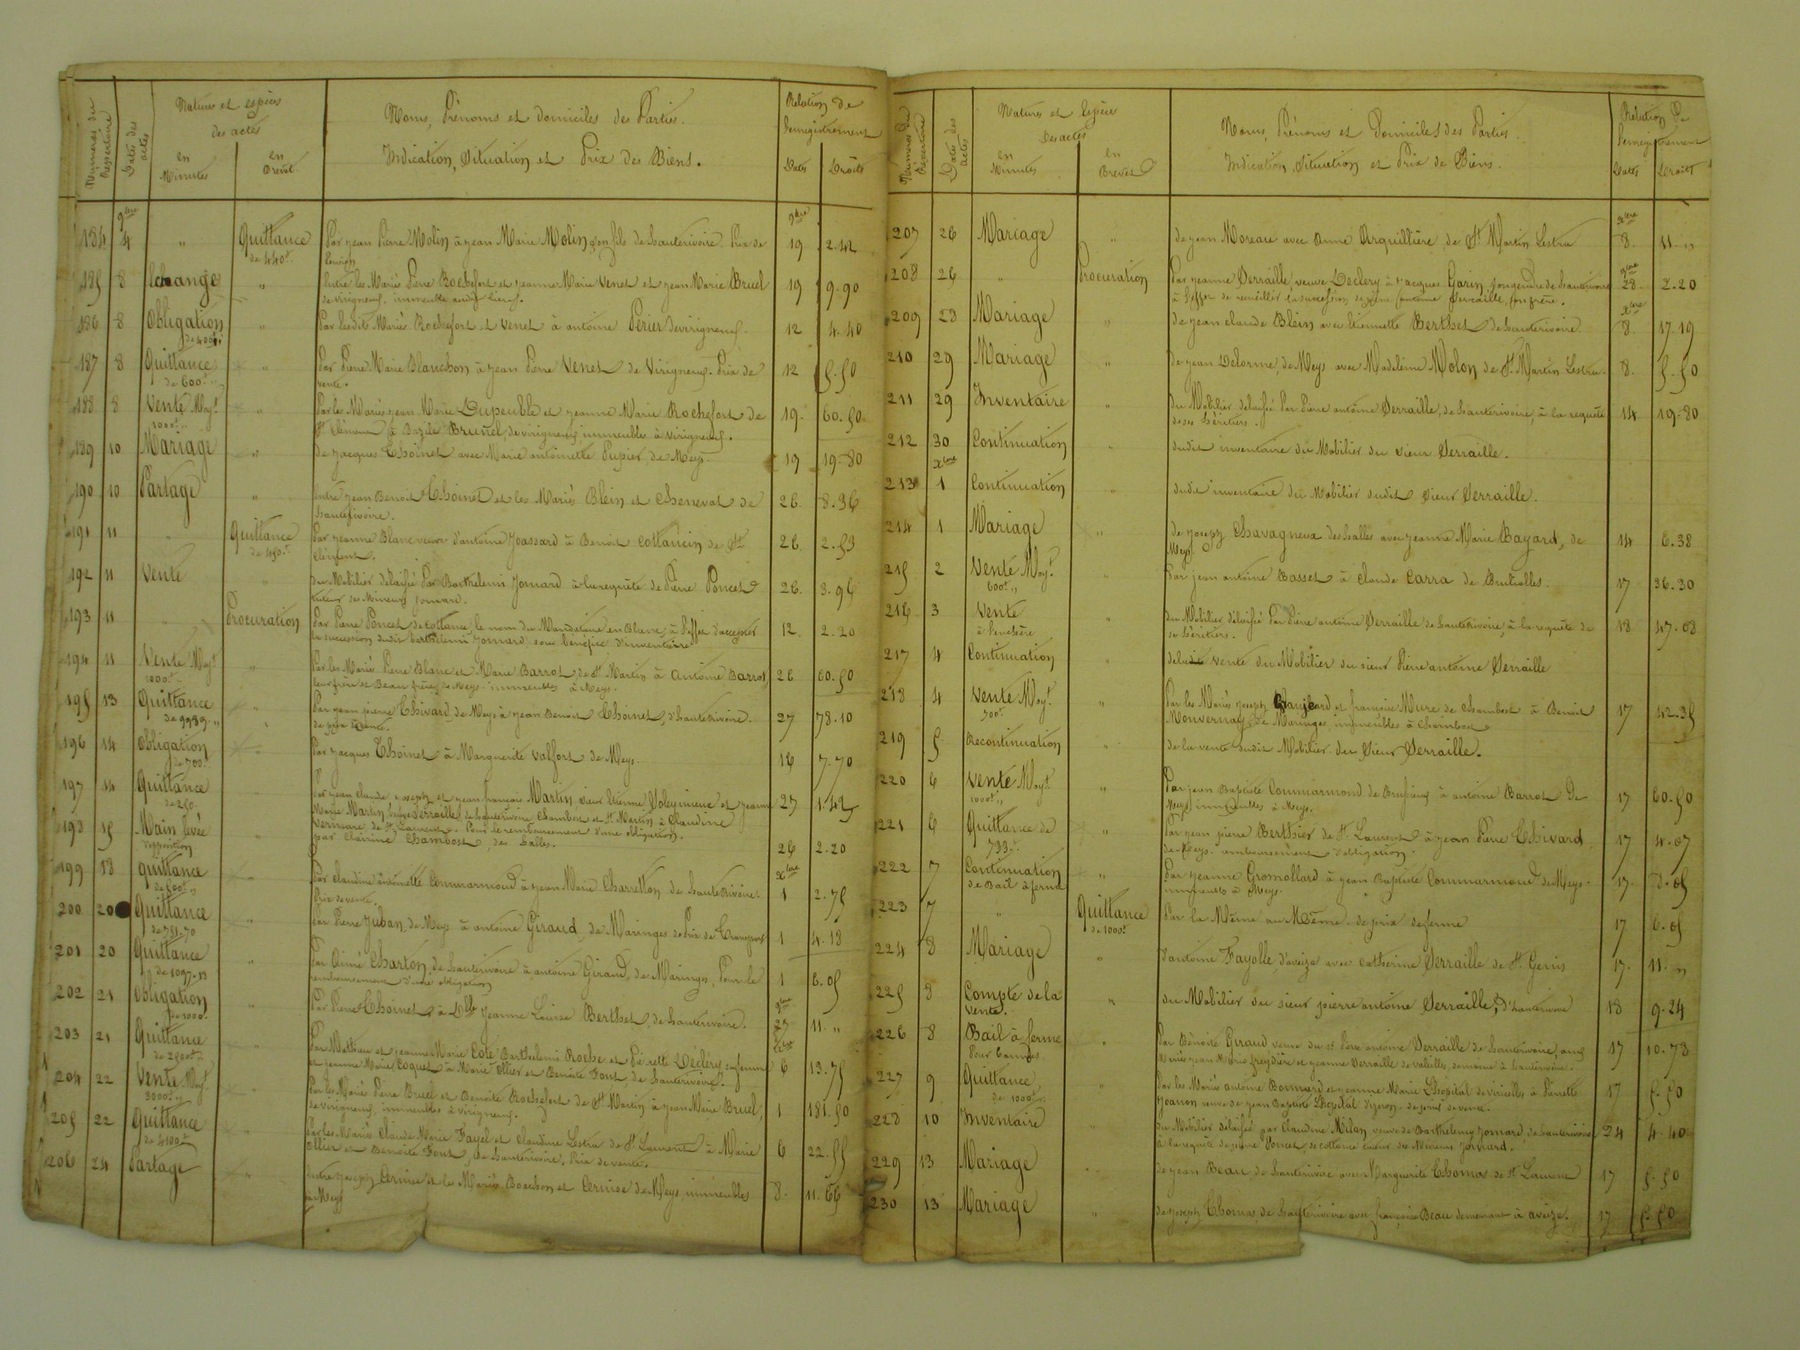 Numéros du Répertoire
Dates des actes
Natures et espèces
des actes
en Minutes
en Brevet
Noms, Prénoms et Domiciles des Parties.
Indication, Situation et Prix des Biens.
Relation de l'enregistrement
Dates
Droits
9bre
9bre
184 4 " Quittance Par Jean Pierre Molin à Jean Marie Molin son fils de hauterivoire. Prix de 19 2.42
de 440f
185 8 Echange " Entre les Mariés Pierre Rochefort et jeanne Marie Venet et jean Marie Bruel 19 9.90
de virigneux, immeuble audit lieu.
186 8 Obligation " Par lesdits Mariés Rochefort et Venet à antoine Perier de virigneux. 12 4.40
de 400f
187 8 Quittance " Par Pierre Marie Blanchon à jean Pierre Venet de Virigneux. Prix de 12 5.50
de 600f vente.
188 8 Vente Moyt " Par les Mariés jean Marie Dupeuble et jeanne Marie Rochefort de 19. 60.50
1000f St Clément à Bazile Brunel, de virigneux, immeubles à virigneux.
189 10 Mariage " de jacques Thoinet avec Marie antoinette Pupier de Meys. 19 19.80
190 10 Partage " Entre jean Benoit Thoinet et les Mariés Blein et Chenevat de 26. 8.36
hauterivoire.
191 11 " Quittance Par jeanne Blanc veuve d'antoine Joassard à Benoit Cottancin de St 26. 2.53
clément.
192 11 Vente " du Mobilier délaissé Par Barthelemi Jomard à la requête de Pierre Poncet 26. 3.96
tuteur des Mineurs Jomard.
193 11 " Procuration Par Pierre Poncet de Cottance, le nom du Mandataire en Blanc, à l'effet d'accepter 12. 2.20
la succession dudit barthelemi Jomard sous bénéfice d'inventaire.
194 11 Vente Moyt " Par les Mariés Pierre Blanc et Marie Barrot, de St Martin à antoine Barrot 26 60.50
1000f leur frère et Beau frère, de Meys. immeubles à Meys.
195 13 Quittance " Par jean pierre Chivard de Meys à jean Benoit Thoinet, d'hauterivoire. 27 78.10
196 14 Obligation " Par jacques Thoinet à Marguerite Valfort de Meys. 16 7.70
de 700f
197 14 Quittance " Par jean Claude, joseph et jean françois Martin, sieur Etienne et jeanne 27 1.42
Marie Martin, de hauterivoire Chambost et St Martin à Claudine
de St Laurent. Pour le remboursement d'une obligation.
198 15 Main levée " par Chambost, des Halles. 26 2.20
d'opposition
Xbre
199 18 Quittance " Par Claudine antoinette Commarmond à jean Marie Charretton, de hauterivoire. 1 2.75
Prix de vente.
200 20 Quittance " Par Pierre Juban, de Meys à antoine Giraud, de Maringes 1 4.18
201 20 Quittance " Par Aimé Charton, de hauterivoire à antoine Giraud, de Maringes, Pour le 1 6.05
remboursement d'une obligation
9bre
202 21 Obligation " Par Pierre Thoinet, à Dlle Jeanne Louise Berthet, de hauterivoire. 27 11."
de 1000f
Xbre
203 21 Quittance " Par Mathieu et jeanne Marie Cote Barthelemi Roche et Pierrette Decléry, sa femme 6 13.75
et jeanne Marie Coquet à Marie Ollier et Benoite Font, de hauterivoire.
204 22 Vente Moyt " Par les Mariés Pierre Bruel et Benoite Rochefort de St Martin à jean Marie Bruel, 1 181.50
3000f de virigneux, immeubles à virigneux.
205 22 Quittance " Par les Mariés Claude Marie Fayel et Claudine Lestra de St Laurent à Marie 6 22.55
de 4100f Ollier et Benoite Font, de hauterivoire, Prix de vente.
206 24 Partage " Entre joseph Cernise et les Mariés Bouchon et Cernise de Meys, immeubles 8. 11.66
à Meys
Numéros du Répertoire
Dates des actes
Natures et Espèces
Des actes
en Minutes
en Brevet
Noms, Prénoms et Domiciles des Parties.
Indication, Situation et Prix de Biens.
Relation De l'enregistrement
Dates
Droits
Xbre
207 26 Mariage " de jean Moreau avec Anne Arquillière, de St Martin Lestra 8. 11."
9bre
208 26 " Procuration Par jeanne Serraille, veuve Declery à jacques Garin, son gendre de hauterivoire 28. 2.20
à l'effet de recueillir la succession de antoine Serraille, son frère.
Xbre
209 28 Mariage " de jean claude Blein avec Etiennette Berthet, de hauterivoire. 8. 17.19
210 29 Mariage " de jean Delorme, de Meys avec Madeleine Molon, de St Martin Lestra. 8. 5.50
211 29 Inventaire " du Mobilier délaissé Par Pierre antoine Serraille, de hauterivoire, à la requête 14 19.80
de ses héritiers.
212 30 Continuation " dudit inventaire du Mobilier du sieur Serraille.
Xbre
213 1 Continuation " dudit inventaire du Mobilier dudit sieur Serraille.
214 1 Mariage " de joseph Chavagneux des halles avec jeanne Marie Bayard, de 14 6.38
Meys.
215 2 Vente Moyt " Par jean antoine Basset à Claude Carra de Brutrolles. 17 36.30
600f
216 3 Vente " du Mobilier délaissé Par Pierre antoine Serraille de hauterivoire, à la requête de 18 47.08
à l'enchère ses héritiers.
217 4 Continuation " de ladite vente du Mobilier du sieur Pierre antoine Serraille
218 4 Vente Moyt " Par les Mariés joseph Granjeard et françoise Mure de Chambost à Benoit 17 42.35
700f Monvernay de Maringes, immeubles à Chambost
219 5 Recontinuation " de la vente dudit Mobilier du Sieur Serraille.
220 6 Vente Moyt " Par jean Baptiste Commarmond de Brussieux à antoine Barrot De 17 60.50
1000f Meys, immeubles à Meys.
221 6 Quittance de " Par jean pierre Berthier de St Laurent à jean Pierre Chivard 17 4.07
733f de Meys. remboursement d'obligation.
222 7 Continuation " Par jeanne Gromollard à jean Baptiste Commarmond de Meys. 17.
de Bail à ferme immeubles à Meys.
223 7 " Quittance Par la Même au Même. de prix de ferme 17 6.05
de 1000f
224 8 Mariage " d'antoine Fayolle d'aveize avec Catherine Serraille de St Genis 17. 11."
225 8 Compte de la " du Mobilier du sieur pierre antoine Serraille, d'hauterivoire 18 9.24
vente.
226 8 Bail à ferme " Par Bénoite Giraud veuve du Sr Pierre antoine Serraille de hauterivoire, aux 17 10.73
Pour 6 années. Mariés jean Marie freydière et jeanne Serraille de valeille, domaine à hauterivoire.
227 9 Quittance " Par les Mariés antoine Bonnard et jeanne Marie Lhopital de viricelles à Pierrette 17 5.50
de 1000f Joanon veuve de jean Baptiste Lhopital de prix de vente.
228 10 Inventaire " du Mobilier délaissé par Claudine Milon, veuve de Barthelemy jomard, de hauterivoire 24 4.40
à la requête de pierre Poncet, de cottance tuteur des Mineurs Jomard.
229 13 Mariage " de jean Beau, de hauterivoire avec Marguerite Thomas de St Laurent 17 5.50
230 13 Mariage " de joseph Thomas, de hauterivoire avec françoise Beau demeurant à aveize. 17 5.50